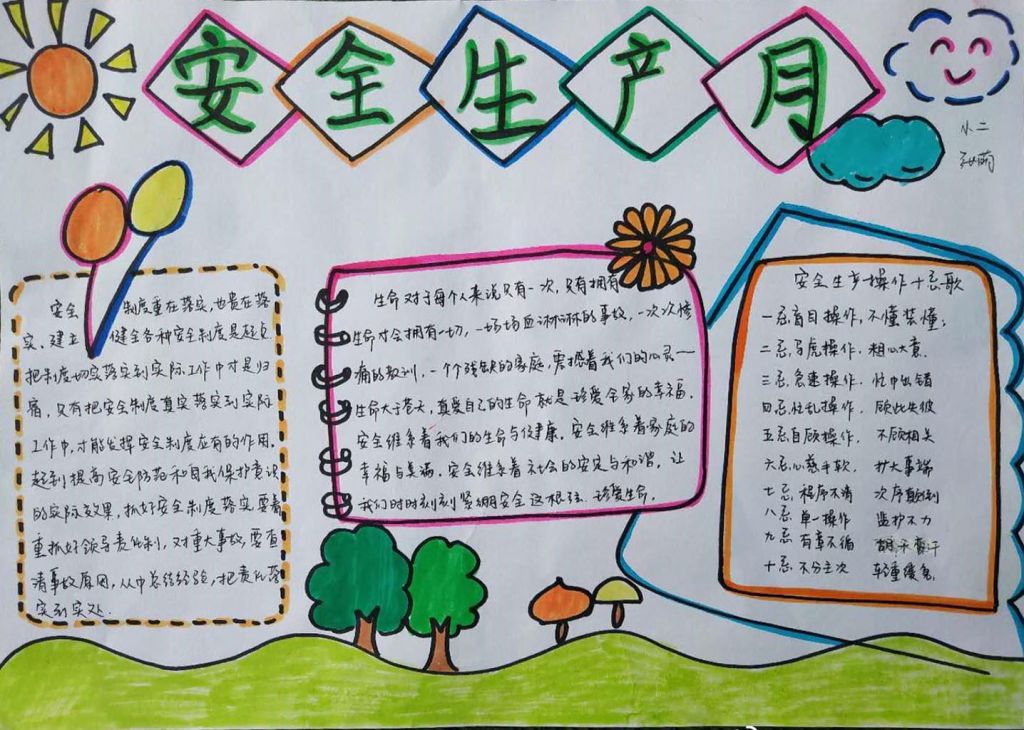 安全生产月
小二
安全制度重在落实,也贵在落
实。建立健全各种安全制度是起点
把制度切实落实到实际工作中才是归
宿,只有把安全制度真实落实到实际
工作中,才能发挥安全制度应有的作用。
起到提高安全防范和自我保护意识
的实际效果,抓好安全制度落实要着
重抓好领导责任制,对重大事故,要查
清事故原因,从中总结经验,把责任落
实到实处.
生命对于每个人来说只有一次,只有拥有
生命才会拥有一切,一场场血淋淋的事故,一次次惨
痛的教训,一个个残缺的家庭,震撼着我们的心灵——
生命大于苍天,真爱自己的生命就是珍爱全家的幸福。
安全维系着我们的生命与健康,安全维系着家庭的
幸福与美满,安全维系着社会的安定与和谐,让
我们时时刻刻紧绷安全这根弦,珍爱生命.
安全生产操作十忌歌
一忌盲目操作,不懂装懂;
二忌马虎操作,粗心大意.
三忌急速操作,忙中出错
四忌忙乱操作,顾此失彼
五忌自顾操作,不顾相关
六忌心慈手软,扩大事端
七忌程序不清 次序颠倒
八忌单一操作 监护不力
九忌有章不循
十忌不分主次 轻重缓急